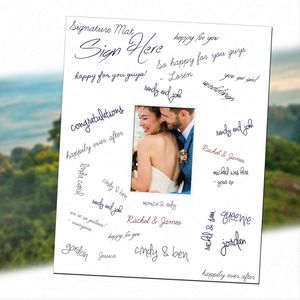 Signature Mat
Sign Here
happy for you
So happy for you guys
- Loren
happy for you guys!
you are girl
weddings
randy and josh
congratulations
happily ever after
randy and josh
Rachel & James
michael was here
cindy & ben
randy and josh
Rachel & James
queenie
jordan
happy for you
gordon
Jessica
cindy & ben
happily ever after